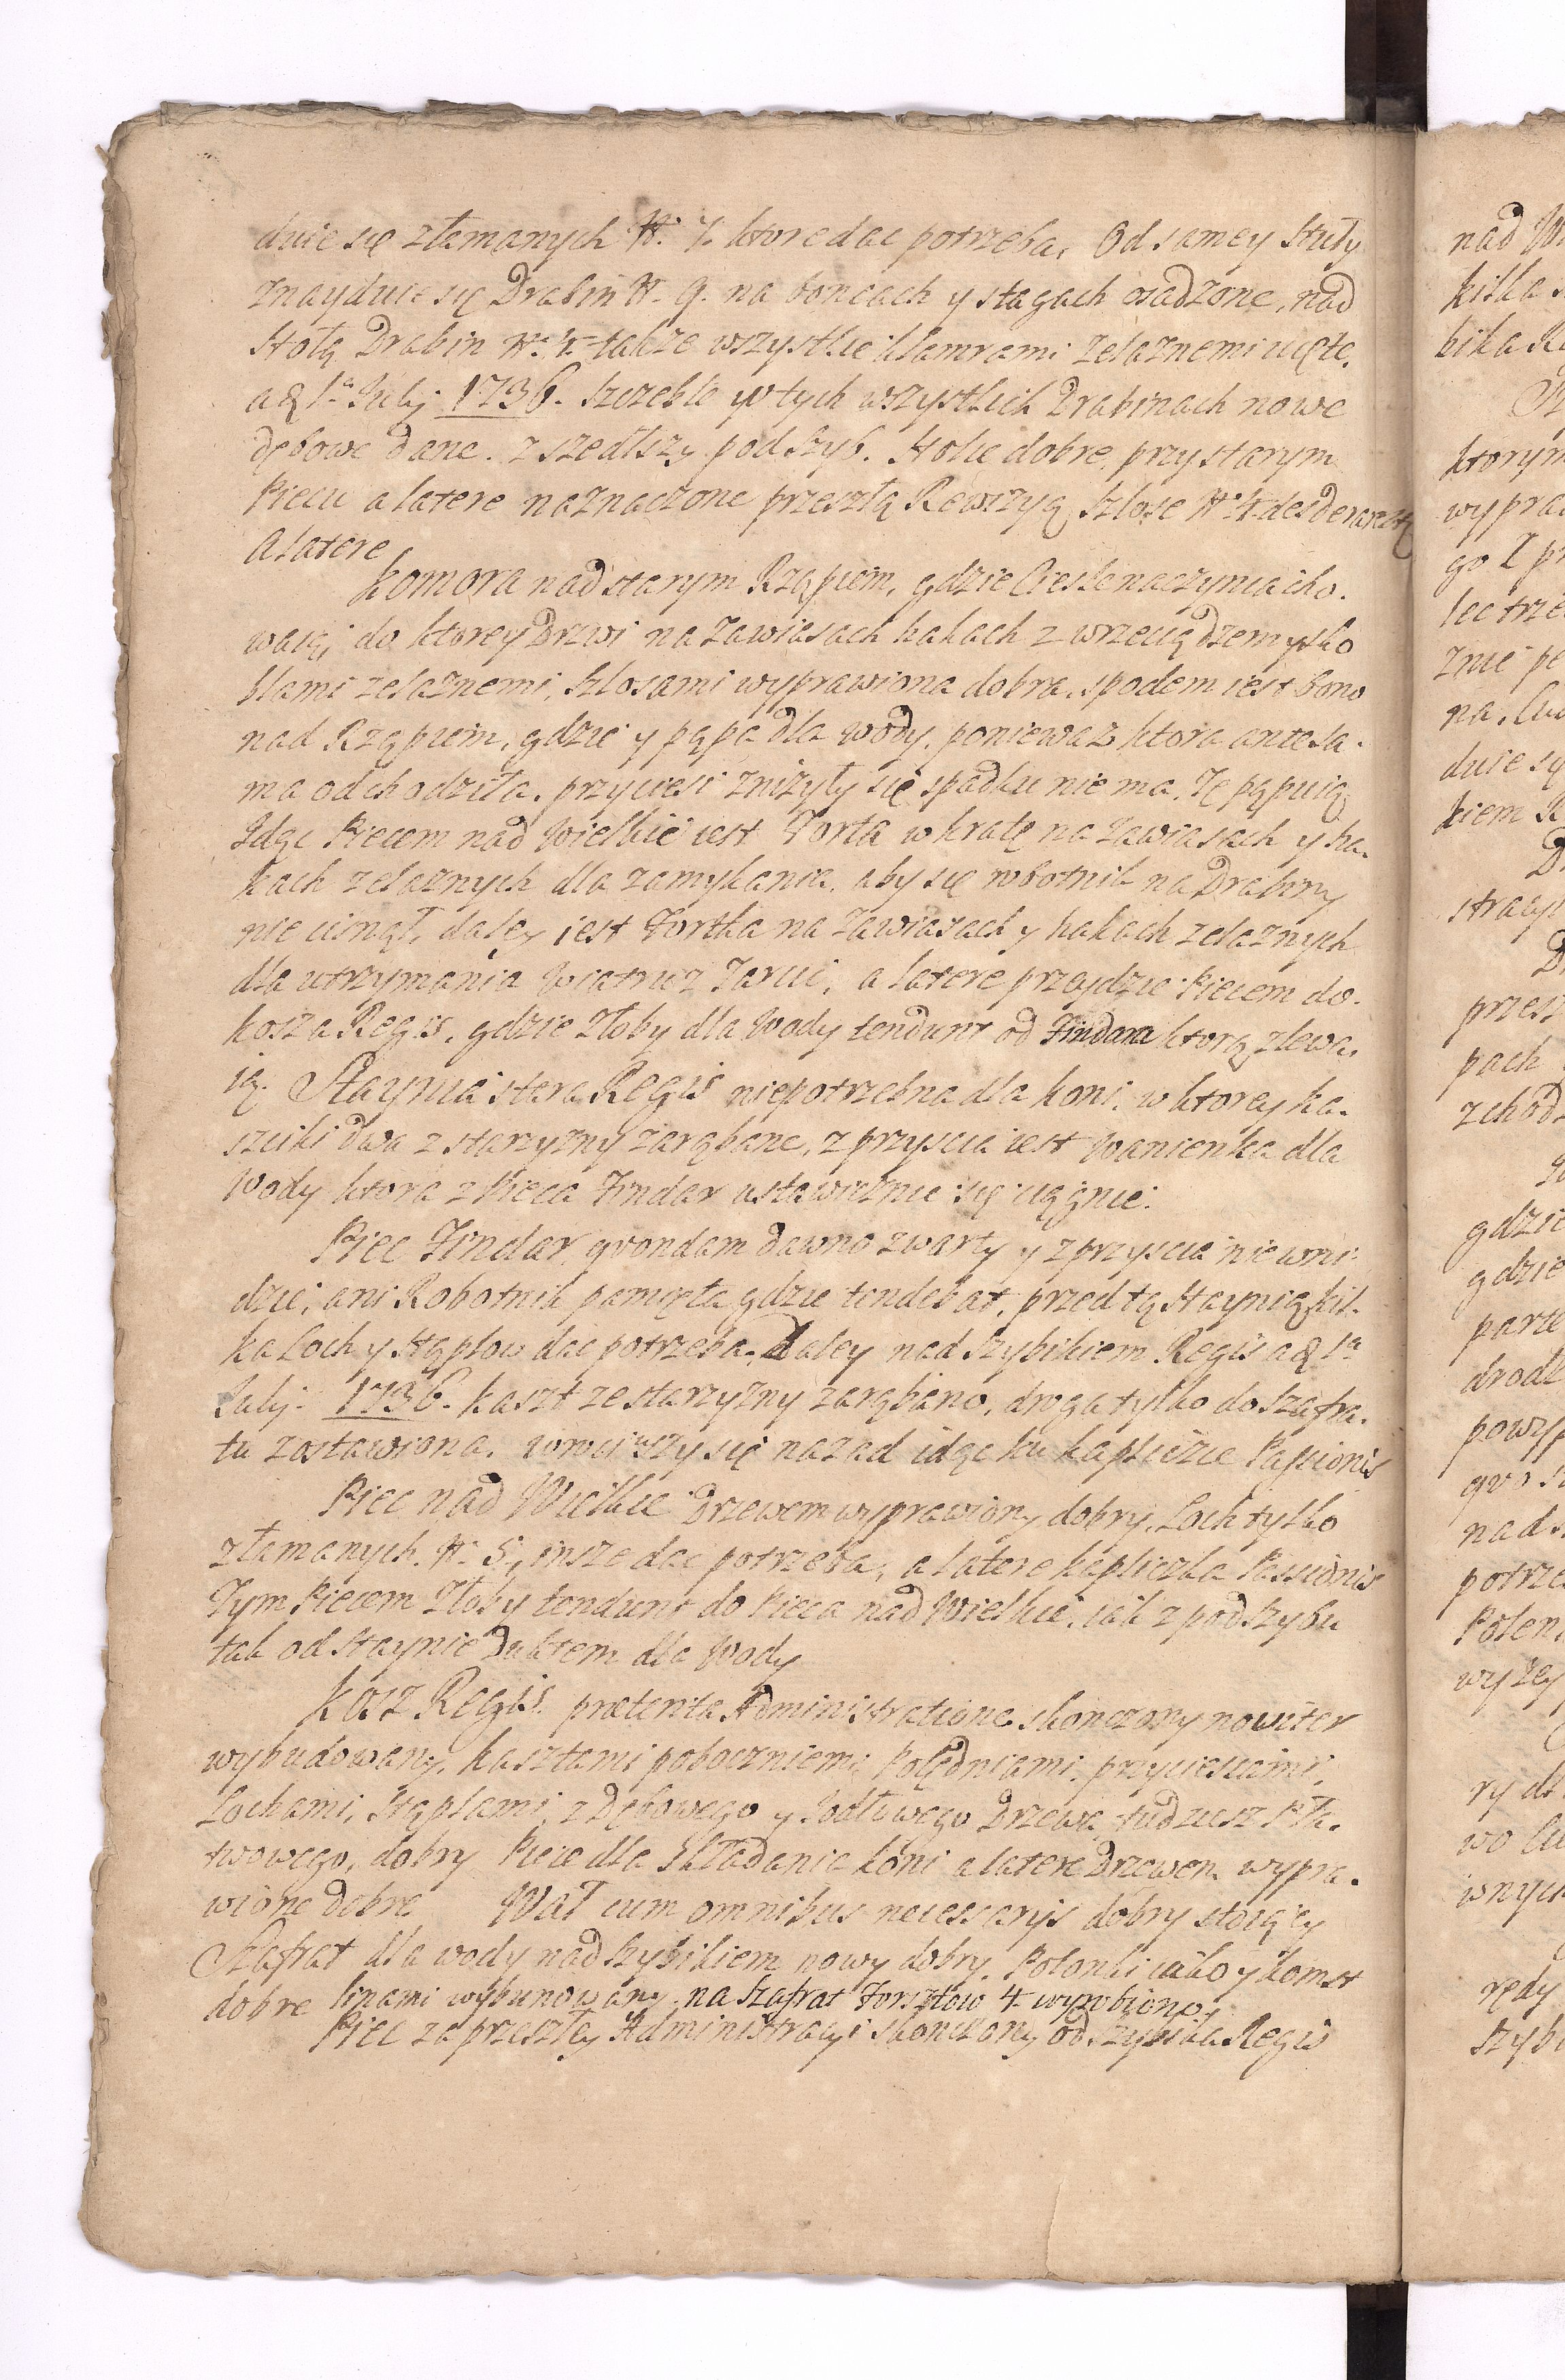 duie się złamanych N. 7. ktore dac potrzeba, Od samey Stuły
znayduie się Drabin N. 9. na boncach y stagach osadzone, nad
Stołą Drabin No 4. także wszystkie klamrami zelaznemi uięte.
a 1a Julij 1736. Szczeble w tych wszystkich Drabinach nowe
dębowe dane. zszedłszy pod Szyb. Stolce dobre, przy starym
Piecu a latere naznaczone przeszłą Rewizyą, Szlose No 4
a latere
Komora nad starym Rząpiem, gdzie Cieśle naczynia cho-
waią, do ktorey Drzwi na Zawiasach hakach z wrzeciądzem y sko
blami zelaznemi, Szlosami wyprawiona dobra, spodem iest bono
nad Rząpiem, gdzie y pąpa dla wody, poniewaz ktora antea sa-
ma odchodziła, przyciesi zniżyły się spadku nie ma, Tę pąpuią
Idąc Piecem nad Wielkie iest Forta w kratę na zawiasach y ha-
kach zelaznych dla zamykania, aby się robotnik na Drabiny
nie cisnął, daley iest Fortka na zawiasach y hakach zelaznych
dla utrzymania Wiatru z Jarui, a latere przeydzie Piecem do
kosza Regis, gdzie Złoby dla Wody tendunt od Findara ktorą zlewa-
ią. Staynia stara Regis niepotrzebna dla koni, w ktorey ka-
szciki dwa z starzyzny zarąbane, z przyscia iest Wanienka dla
Wody ktora z Pieca Findar ustawicznie się ciągnie.
Piec Findar quondam dawno zwarty y z przyscia nie wni-
dzie, ani Robotnik pamięta gdzie tendebat, przed tą Staynią kil-
ka Loch y Stęplow dac potrzeba. Daley nad Szybikiem Regis a 1a
Julij 1736. kaszt ze starzyzny zarąbano, droga tylko do Szafra-
tu zostawiona. wrociwszy się nazad idąc ku kapliczce Passionis
Piec nad Wielkie Drzewem wyprawiony dobry, Loch tylko
złamanych N. 5, insze dac potrzeba, a latere kapliczka Passionis
Tym Piecem Złoby tendunt do Pieca nad Wielkie, iak z pod Szybu
tak od Staynie Duktem dla Wody
Kosz Regis. praetenta Administratione skonczony noviter
wybudowany, kasztami poboczniemi Polędniami, przyciesiami,
Lochami, Stęplami, z Dębowego y Jodłowego Drzewa tudziesz Pła-
twowego, dobry Piece dla Składania koni a latere Drzewem wypra-
wione dobre Wał cum omnibus necessarijs dobry stoiący
Szafrat dla wody nad Szybikiem nowy dobry. Polonki iako y komst
dobre linami wybunowany, na Szafrat Forsztow 4 wyrobiono
Piec za przeszłey Administracyi skonczony od Szybika Regis